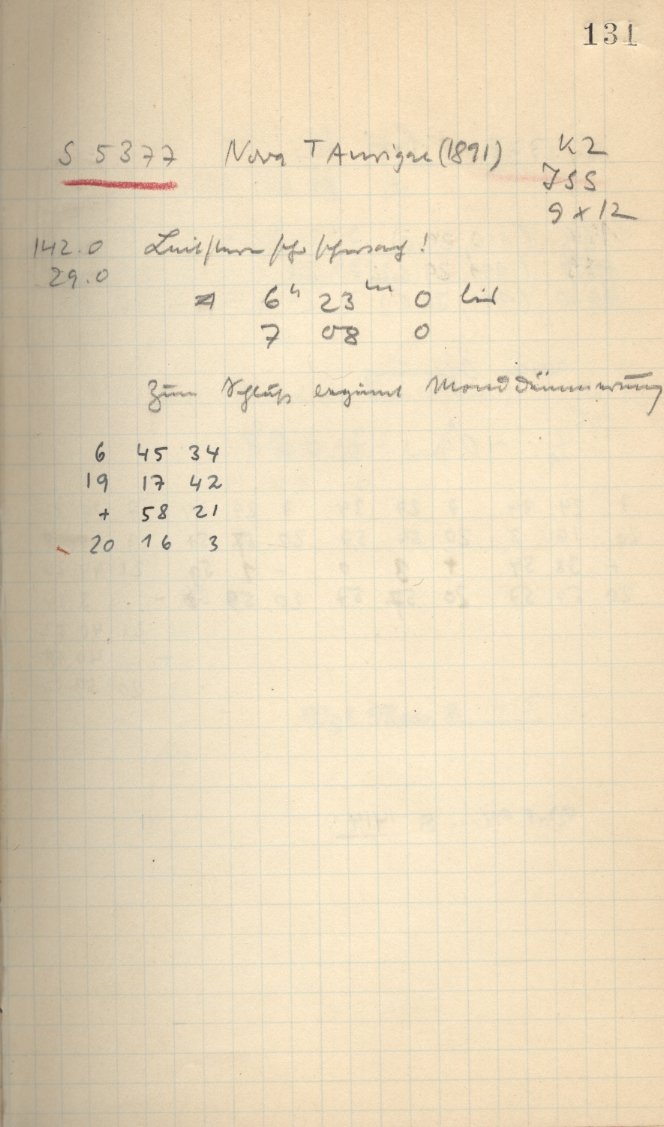 131
S 5377 Nova T Aurigae (1891) K2
JSS
9 x 12
142.0 Leitstern sehr schwach!
29.0
6h 23m 0 bis
7 08 0
Zum Schluß beginnt Monddämmerung
6 45 34
19 17 42
+ 58 21
20 16 3